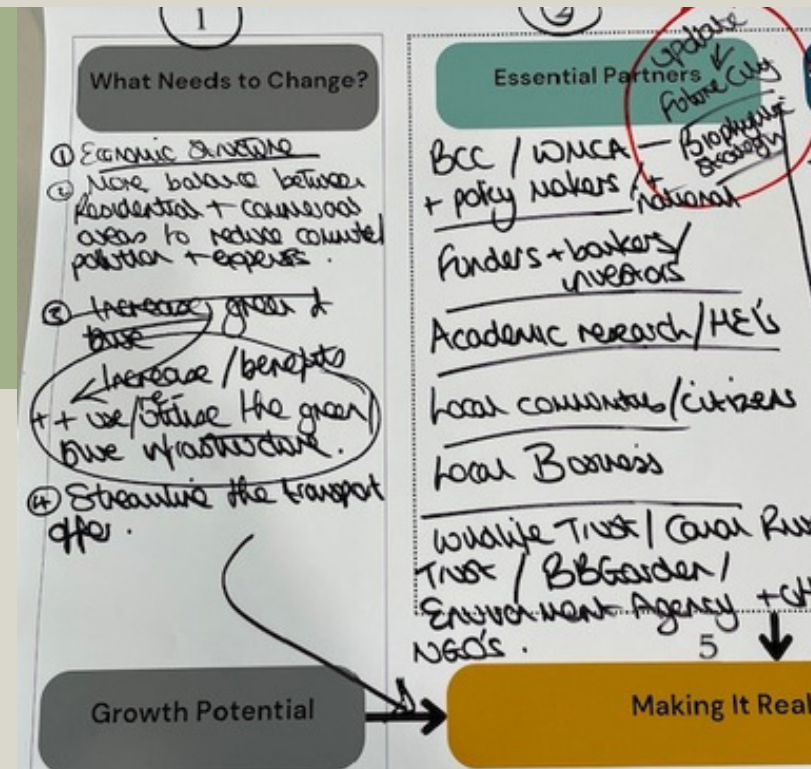 1
What Needs to Change?
① Economic Structure
② More balance between
Residential + commercial
areas to reduce commuter
pollution + expenses.
③ Increase green &
blue
Increase / benefits
+ + use/utilise the green/
blue infrastructure.
④ Streamline the transport
offer.
Growth Potential
2
Essential Partners
update
Future City
Biophilic
strategy
BCC / WMCA
+ policy makers / + national
Funders + bankers/
investors
Academic research/HEI's
Local communities/citizens
Local Business
Wildlife Trust / Canal
Trust / BBGarden/
Environment Agency
NGO's.
5
Making It Real